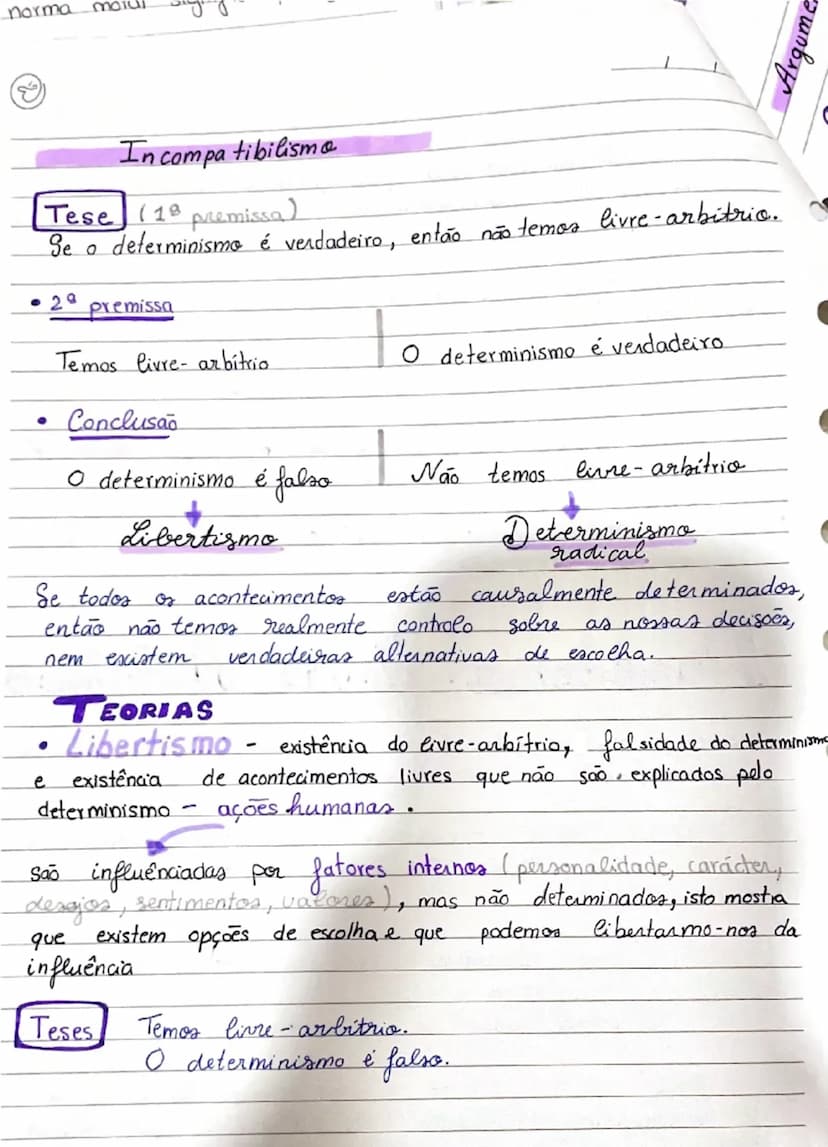 norma moral
Argume
Incompatibilismo
Tese (1ª premissa)
Se o determinismo é verdadeiro, então não temos livre-arbítrio.
• 2ª premissa
Temos livre-arbítrio | O determinismo é verdadeiro
• Conclusão
O determinismo é falso | Não temos livre-arbítrio
Libertismo Determinismo
radical
Se todos os acontecimentos estão causalmente determinados,
então não temos realmente controlo sobre as nossas decisões,
nem existem verdadeiras alternativas de escolha.
TEORIAS
• Libertismo - existência do livre-arbítrio, falsidade do determinismo
e existência de acontecimentos livres que não são explicados pelo
determinismo - ações humanas.
São influênciadas por fatores internos (personalidade, carácter,
desejos, sentimentos, valores), mas não determinados, isto mostra
que existem opções de escolha e que podemos libertarmo-nos da
influência
Teses Temos livre-arbítrio.
O determinismo é falso.